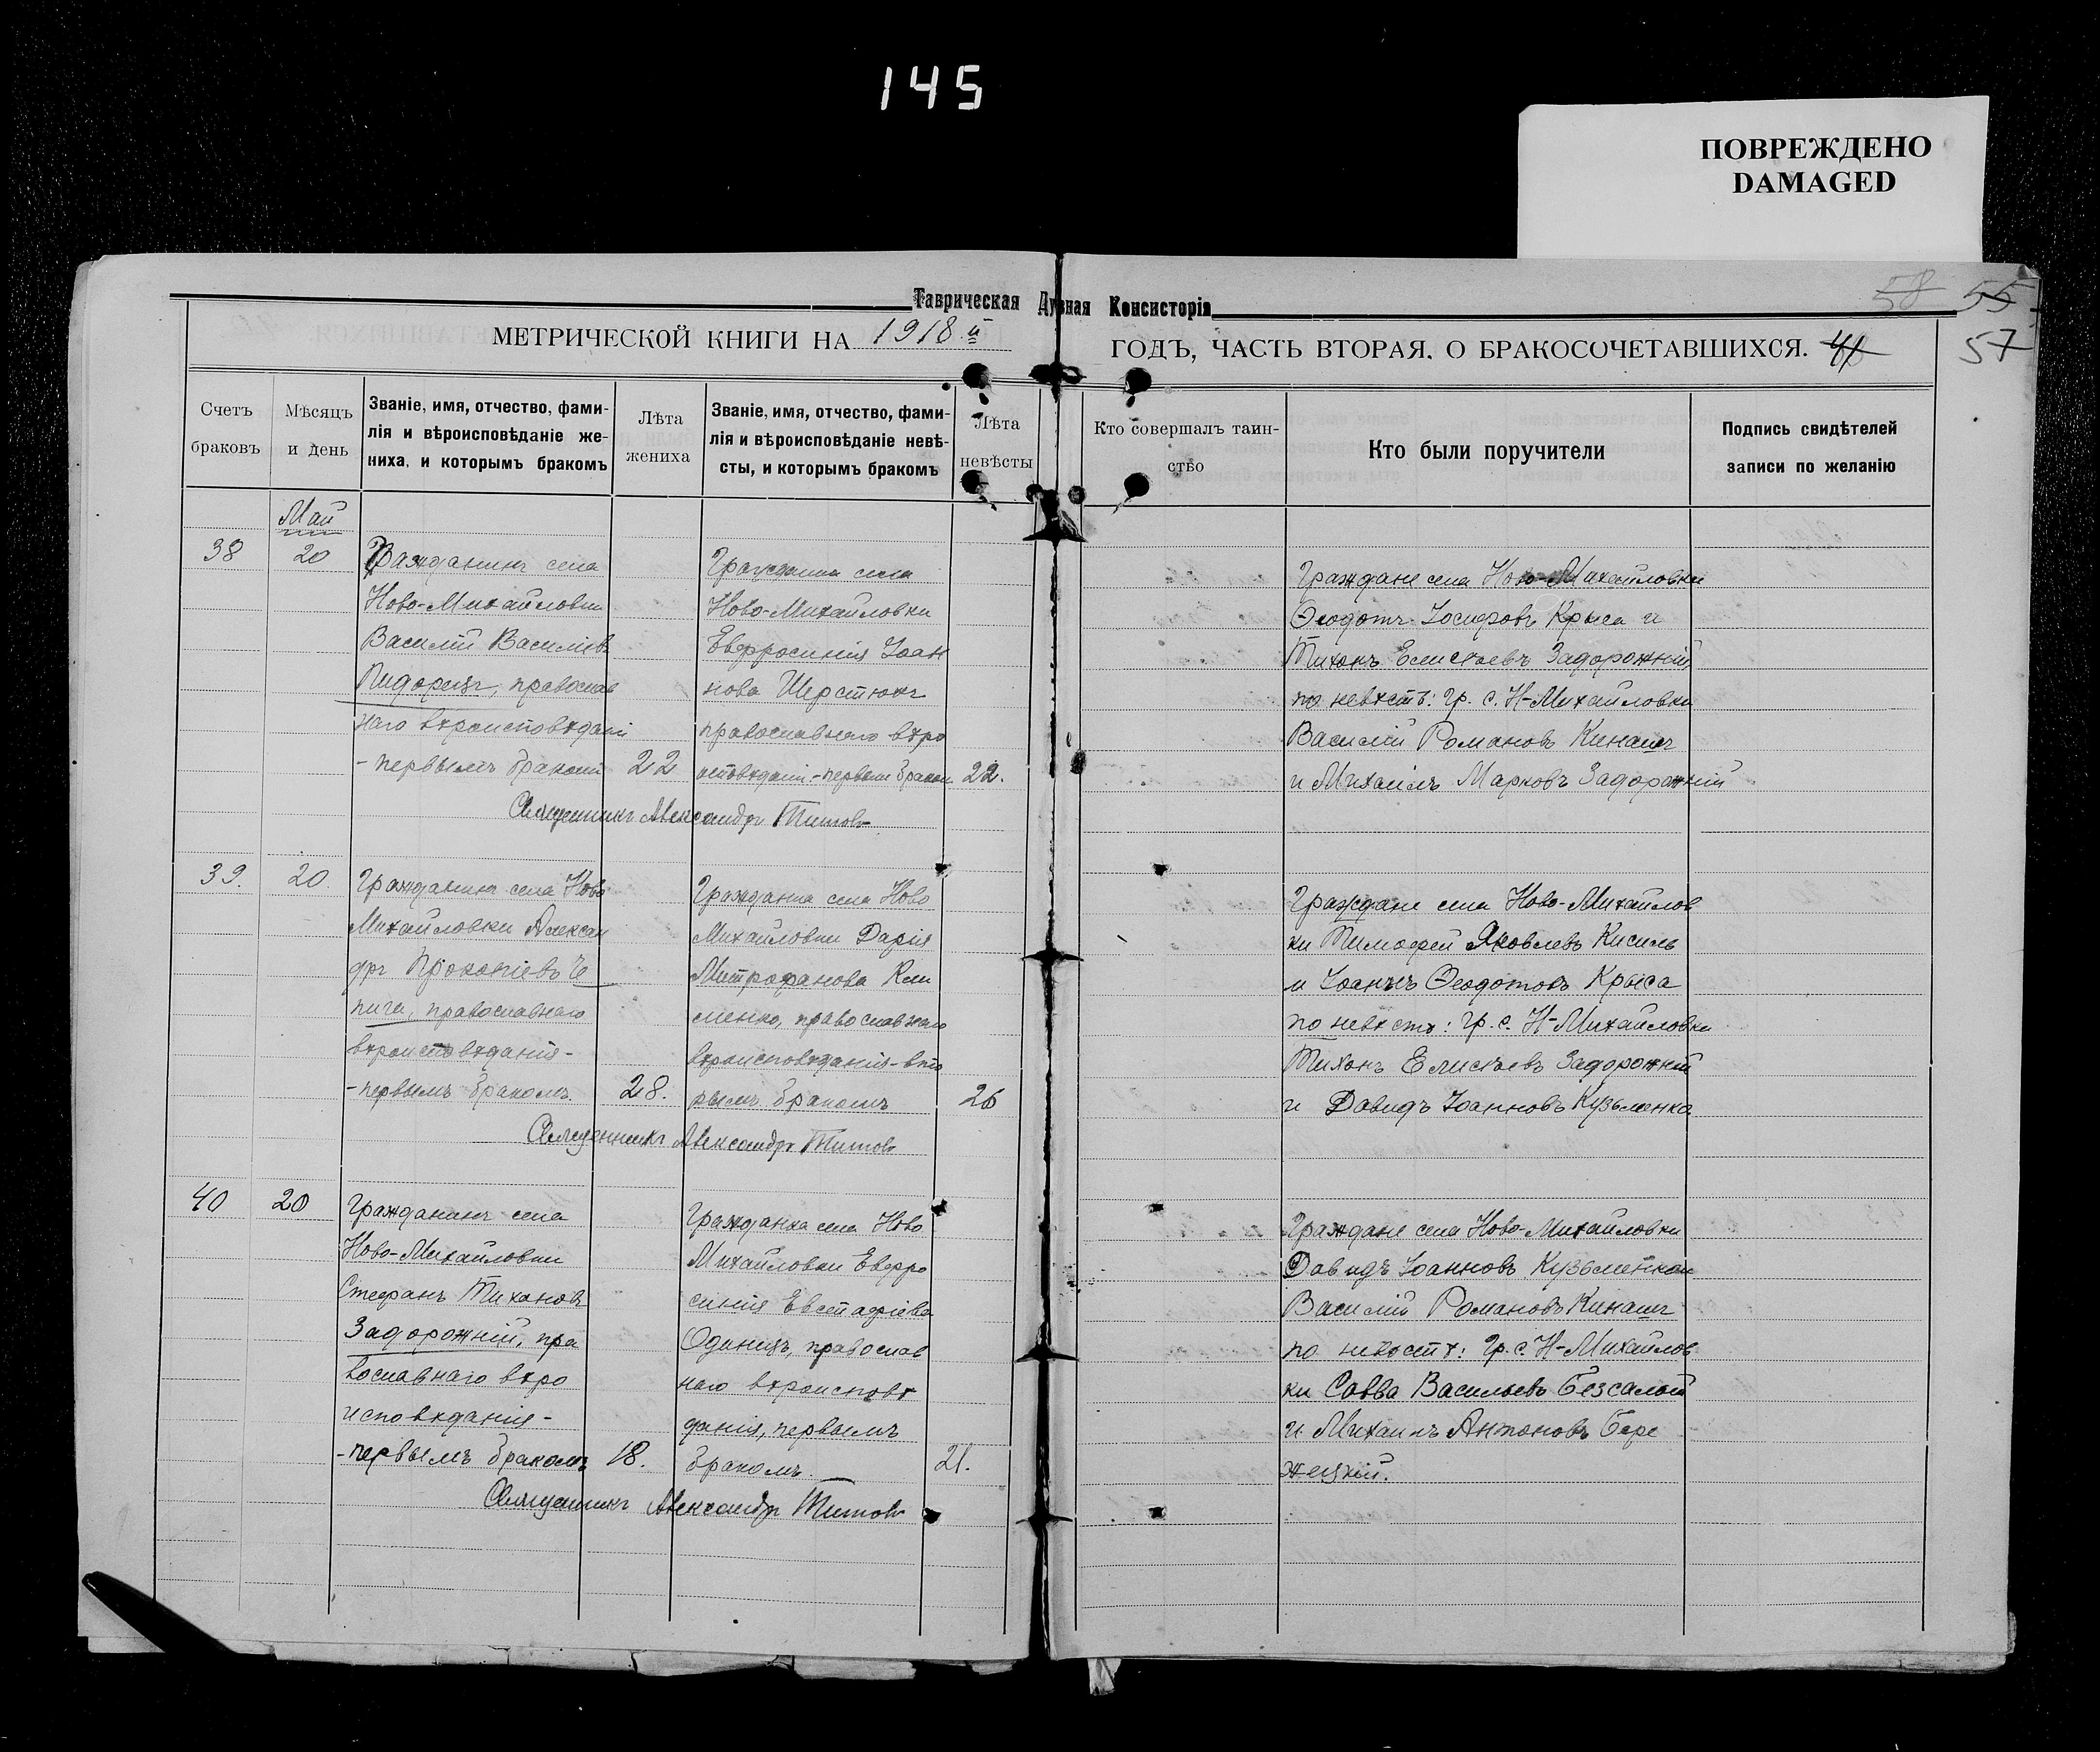 145
ПОВРЕЖДЕНО
DAMAGED
Таврическая Духовная Консисторія
58 55
МЕТРИЧЕСКОЙ КНИГИ НА 1918.й ГОДЪ, ЧАСТЬ ВТОРАЯ, О БРАКОСОЧЕТАВШИХСЯ.
57
Счетъ браковъ
Мѣсяцъ и день
Званіе, имя, отчество, фами-
лія и вѣроисповѣданіе же-
ниха, и которымъ бракомъ
Лѣта жениха
Званіе, имя, отчество, фами-
лія и вѣроисповѣданіе невѣ-
сты, и которымъ бракомъ
Лѣта невѣсты
Кто совершалъ таин-
ство
Кто были поручители
Подпись свидѣтелей
записи по желанію
Май
38
20
Гражданинъ села
Ново-Михайловки
Василій Василіевъ
Пидорецъ, православ
наго вѣроисповѣданія
- первымъ бракомъ
22
Гражданка села
Ново-Михайловки
Евфросинія Іоан
нова Шерстюкъ
православнаго вѣро
исповѣданія - первымъ бракомъ
22.
Священникъ Александръ Титовъ
Граждане села Ново-Михайловки
Ѳеодотъ Іосифовъ Крыса и
Тихонъ Елисѣевъ Задорожній
по невѣстѣ: гр. с. Н-Михайловки
Василій Романовъ Кинашъ
и Михаилъ Марковъ Задорожній
39.
20.
Гражданинъ села Ново
Михайловки Алексан
дръ Прокопіевъ Че
пига, православнаго
вѣроисповѣданія -
- первымъ бракомъ.
28.
Гражданка села Ново
Михайловки Дарія
Митрофанова Кли
менко, православнаго
вѣроисповѣданія - вто
рымъ бракомъ
26
Священникъ Александръ Титовъ
Граждане села Ново-Михайлов
ки Тимофей Яковлевъ Кисиль
и Іоаннъ Ѳеодотовъ Крыса
по невѣстѣ: гр. с. Н-Михайловки
Тихонъ Елисѣевъ Задорожній
и Давидъ Іоанновъ Кузьменко
40
20
Гражданинъ села
Ново-Михайловки
Стефанъ Тихоновъ
Задорожній, пра
вославнаго вѣро
исповѣданія -
- первымъ бракомъ
18.
Гражданка села Ново
Михайловки Евфро
синія Евстафіева
Одинецъ, православ
наго вѣроисповѣ
данія, первымъ
бракомъ.
21.
Священникъ Александръ Титовъ
Граждане села Ново-Михайловки
Давидъ Іоанновъ Кузьменко и
Василій Романовъ Кинашъ
по невѣстѣ: гр. с. Н-Михайлов
ки Савва Васильевъ Безсалый
и Михаилъ Антоновъ Бере
жецкій.